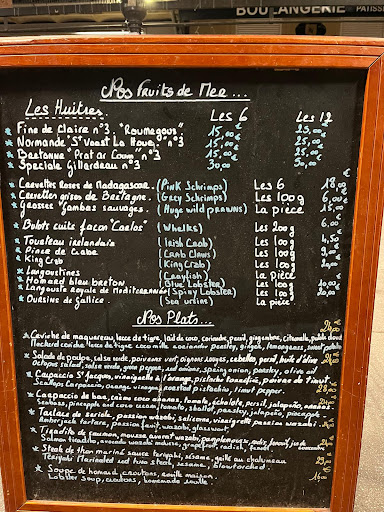 BOULANGERIE PATISS
Nos Fruits de Mer...
Les Huîtres Les 6 Les 12
Fine de Claire n°3 "Roumegous" 15,00€ 25,00€
Normandie "St Vaast La Houe" n°3 15,00€ 25,00
Bretonne "Prat ar Coum" n°3 15,00€
Speciale Gillardeau n°3 30,00
Crevettes Roses de Madagascar. (Pink Schrimps) Les 6 18,00
Crevettes grises de Bretagne. (Grey Schrimps) Les 100g 6,00
Grosses "Gambas sauvages. (Huge wild prawns) La pièce 15,00
"Bulots cuits façon "Caelos" (Whelks) Les 200g
Tourteau irelandais (Irish Crab) Les 100g 4,50
Pince de Crabe (Crab Claws) Les 100g
King Crab (King Crab) Les 100g
Langoustines (Crayfish) La pièce
Homard bleu breton (Blue Lobster) Les 100g
Langouste royale de Mediterranée (Spiny Lobster) Les 100g
Oursins de Galice. (Sea urchins) La pièce
Nos Plats...
Ceviche de maquereau, leche de tigre, lait de coco, coriandre, persil, gingembre, citronnelle,
Mackerel ceviche, leche tigre, coconut milk, coriander, parsley, ginger, lemongrass,
Salade de poulpe, salsa verde, poivrons vert, oignons rouges, cebettes, persil, huile d'olive
Octopus salad, salsa verde, green pepper, red onions, spring onion, parsley, olive oil
Carpaccio St Jacques, vinaigrette à l'orange, pistache torréfiée, poivre de timut
Scallops Carpaccio, orange vinaigrette, roasted pistachio, timut pepper
tomate, échalote, persil, jalapeño, ananas
Seabass, pineapple coco cream, tomato, shallot, parsley, jalapeño, pineapple
Taillade de seriole, passion wasabi, salicorne, vinaigrette passion wasabi
Amberjack tartare, passion fruit, wasabi,
Tiradito de saumon, mousse avocat wasabi, pamplemousse, radis,
Salmon tiradito, avocado wasabi mousse, grapefruit, radish, fennel
Steak de thon mariné sauce teriyaki, sésame, grillé au chalumeau
Teriyaki Marinated red tuna steak, sesame, blowtorched
Soupe de homard, croutons, rouille maison.
Lobster soup, croutons, homemade rouille